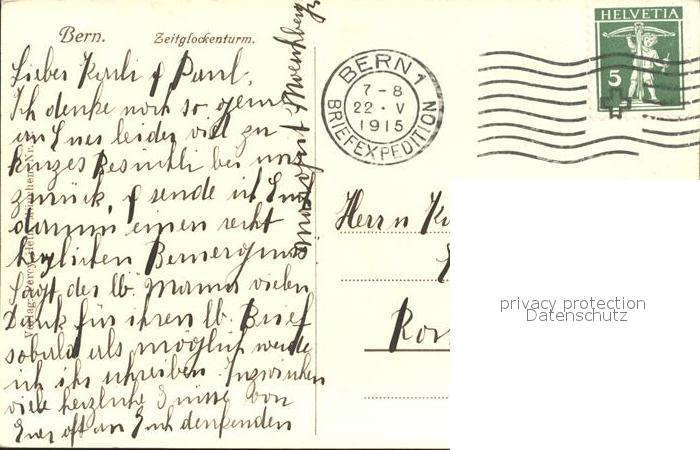 Bern. Zeitglockenturm.
Lieber Karli & Paul,
Ich denke noch so gerne
an Eues leider viel zu
kurzes Besuchli bei uns
zurück, & sende ich Eu
darum einen recht
herzlichen Bernergruss
Sagt der lb. Mama vielen
Dank für ihren lb. Brief
sobald als möglich werde
ich ihr schreiben. Inzwischen
viele herzliche Grüsse von
Euer oft an Euch denkenden
HELVETIA
5
BERN 1
7-8
22·V
1915
BRIEFEXPEDITION
Herrn
privacy protection
Datenschutz